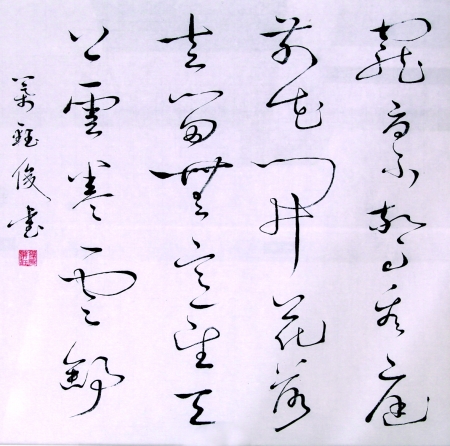 寵辱不驚看庭
前花開花落
去留無意望天
上雲卷雲舒
葉鈺俊書